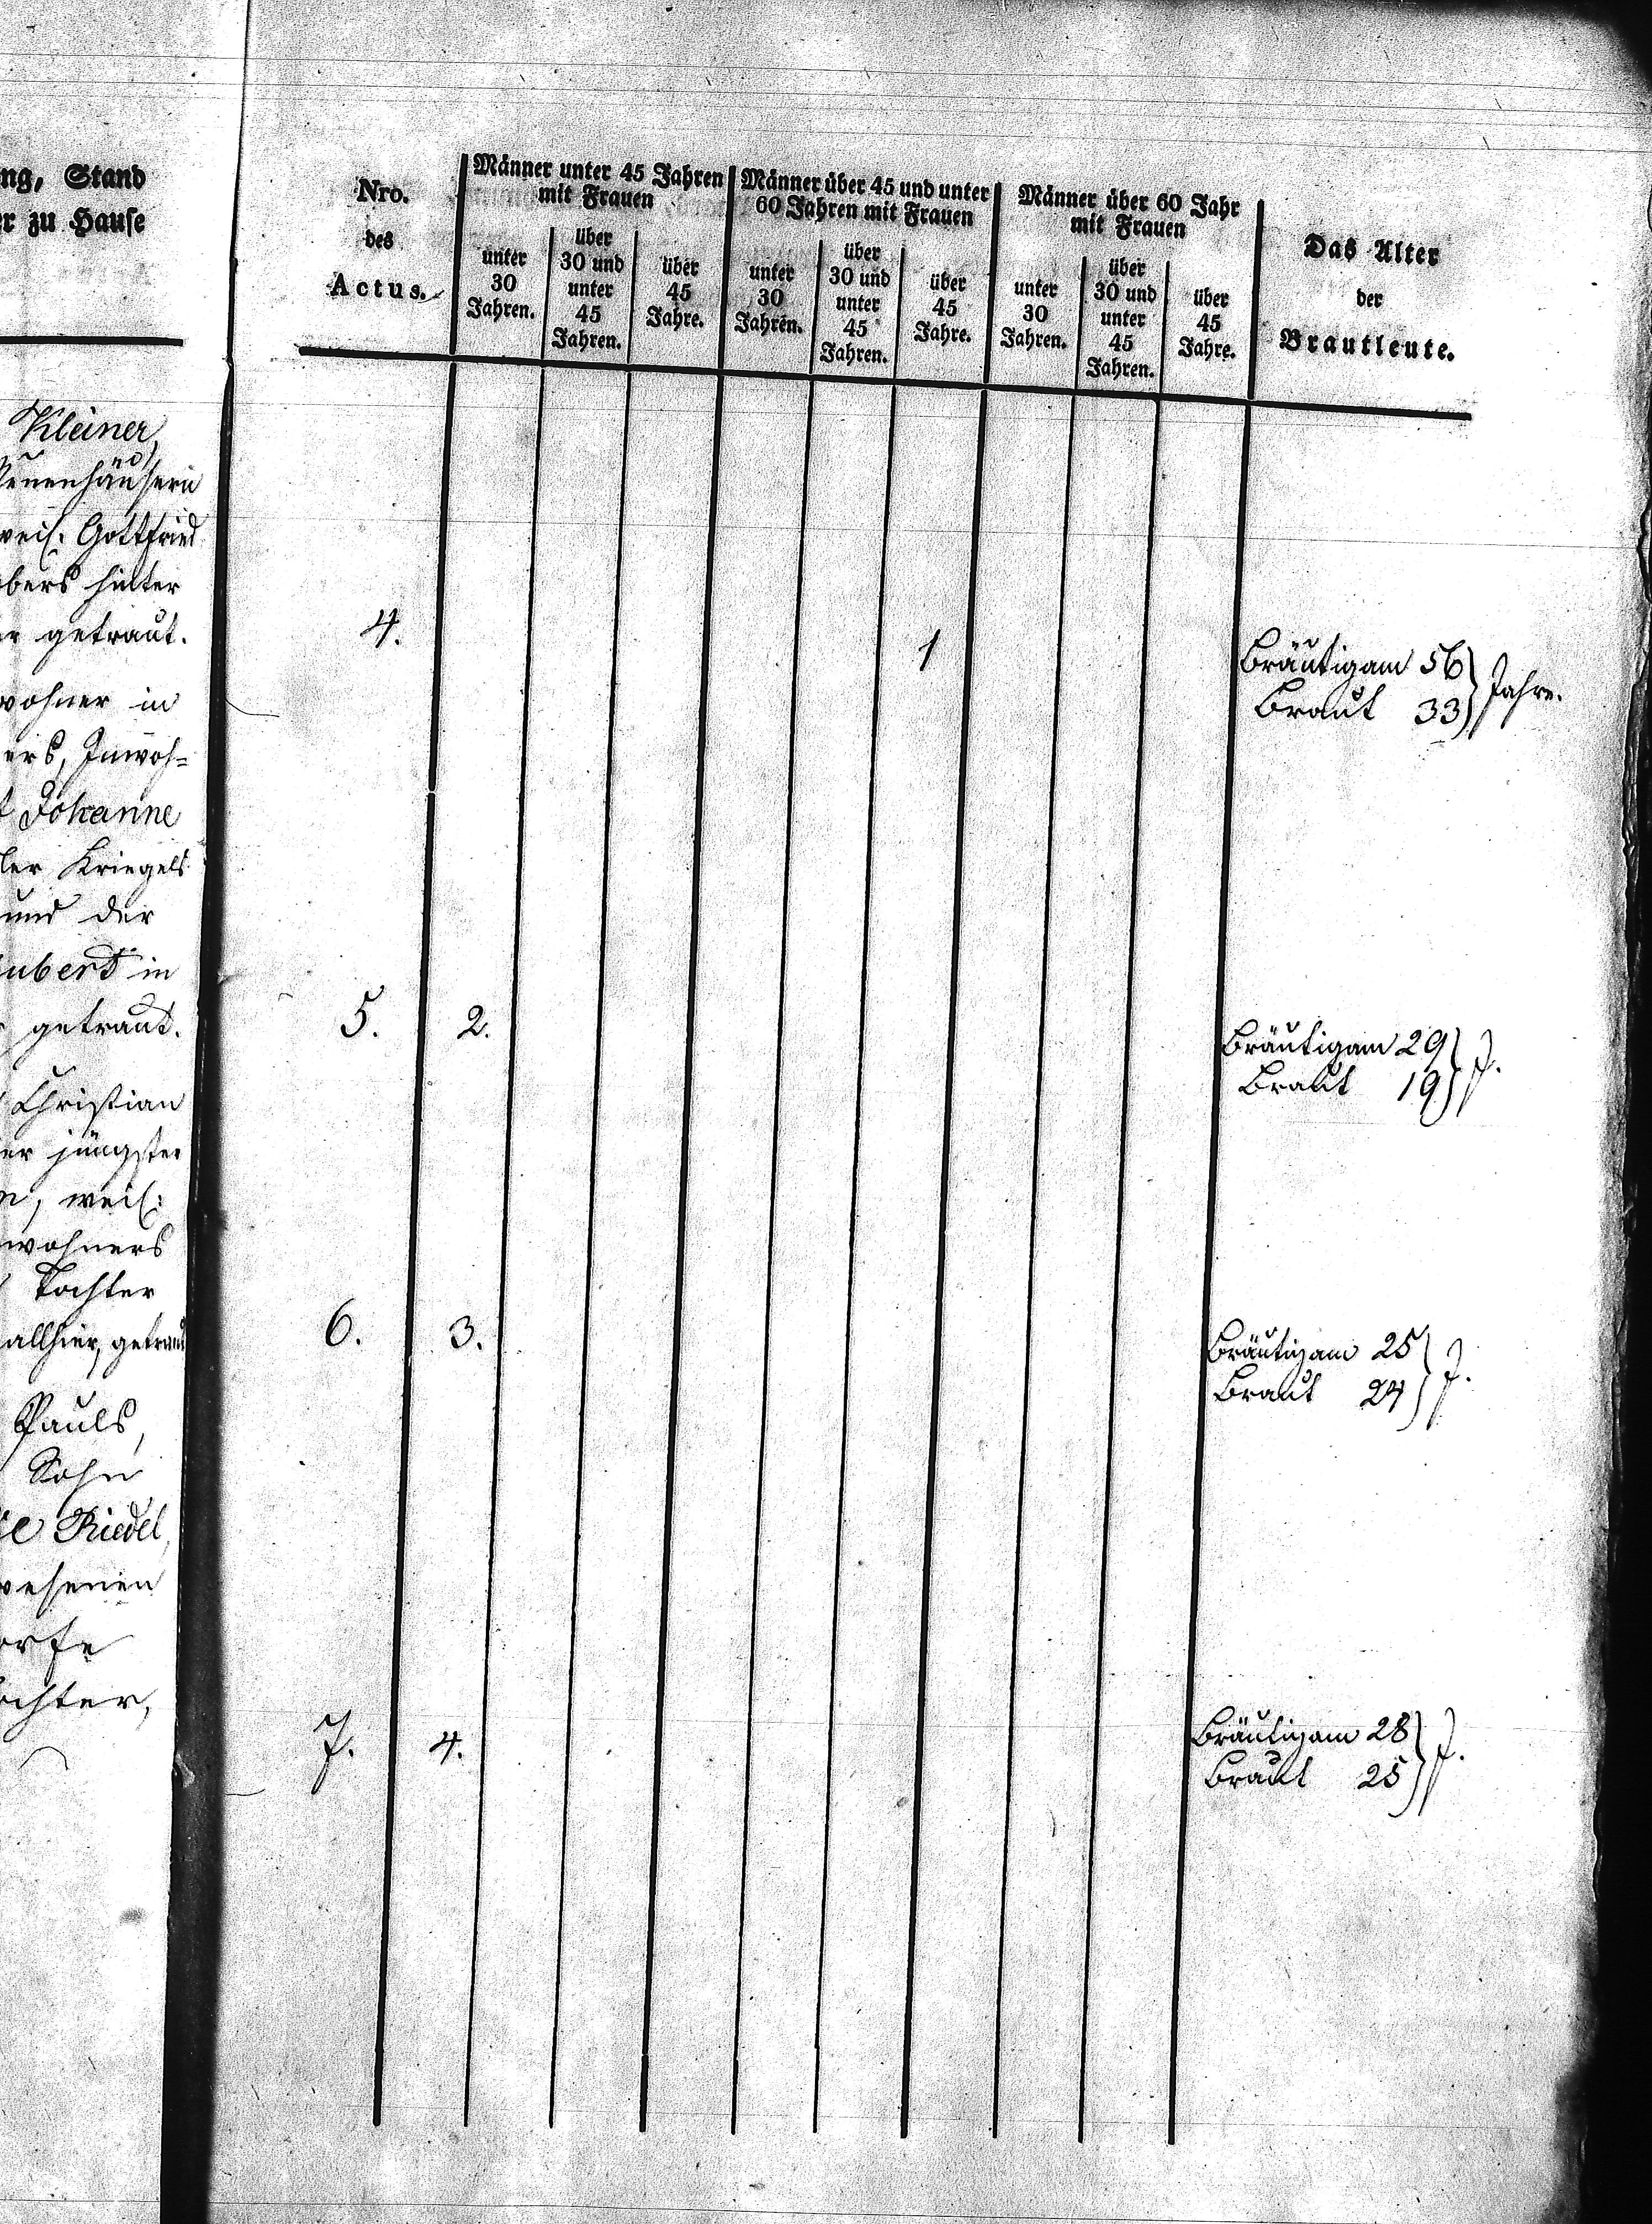 ng, Stand
r zu Hause
Kleiner,
Neuenhäusern
weil. Gottfried
bers hinter
r getraut.
wohner in
ers, Inwoh=
t Johanne
ler Kriegels
und der
ubert in
getraut.
Christian
er jüngster
n, weil:
wohners
Tochter
allhier, getraut
Pauls,
Sohn
ie Riedel,
wesenen
orfe
ochter,
Nro.
des
Actus.
Männer unter 45 Jahren
mit Frauen
unter
30
Jahren.
über
30 und
unter
45
Jahren.
über
45
Jahre.
Männer über 45 und unter
60 Jahren mit Frauen
unter
30
Jahren.
über
30 und
unter
45
Jahren.
über
45
Jahre.
Männer über 60 Jahr
mit Frauen
unter
30
Jahren.
über
30 und
unter
45
Jahren.
über
45
Jahre.
Das Alter
der
Brautleute.
4. 1 Bräutigam 56 } Jahre.
Braut 33
5. 2. Bräutigam 29 } J.
Braut 19
6. 3. Bräutigam 25 } J.
Braut 24
7. 4. Bräutigam 28 } J.
Braut 25